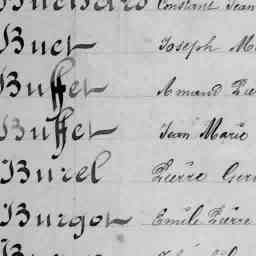 Constant Jean
Buet Joseph M
Buffet Amand
Buffet Jean Marie
Burel Pierre
Burgot Emile Pierre